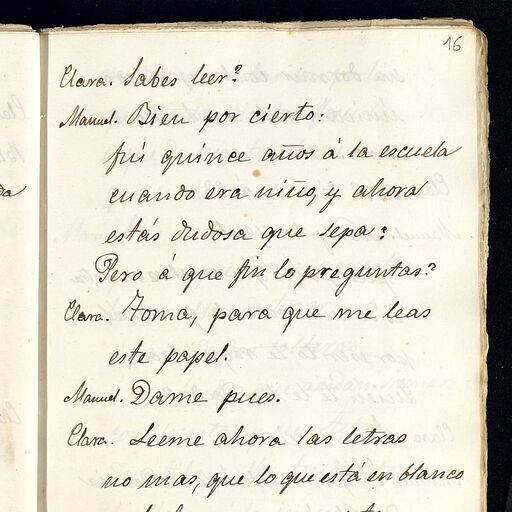 16
Clara. Sabes leer?
Manuel. Bien por cierto:
fuí quince años á la escuela
cuando era niño, y ahora
estás dudosa que sepa?
Pero á que fin lo preguntas?
Clara. Toma, para que me leas
este papel.
Manuel. Dame pues.
Clara. Leeme ahora las letras
no mas, que lo que está en blanco
da